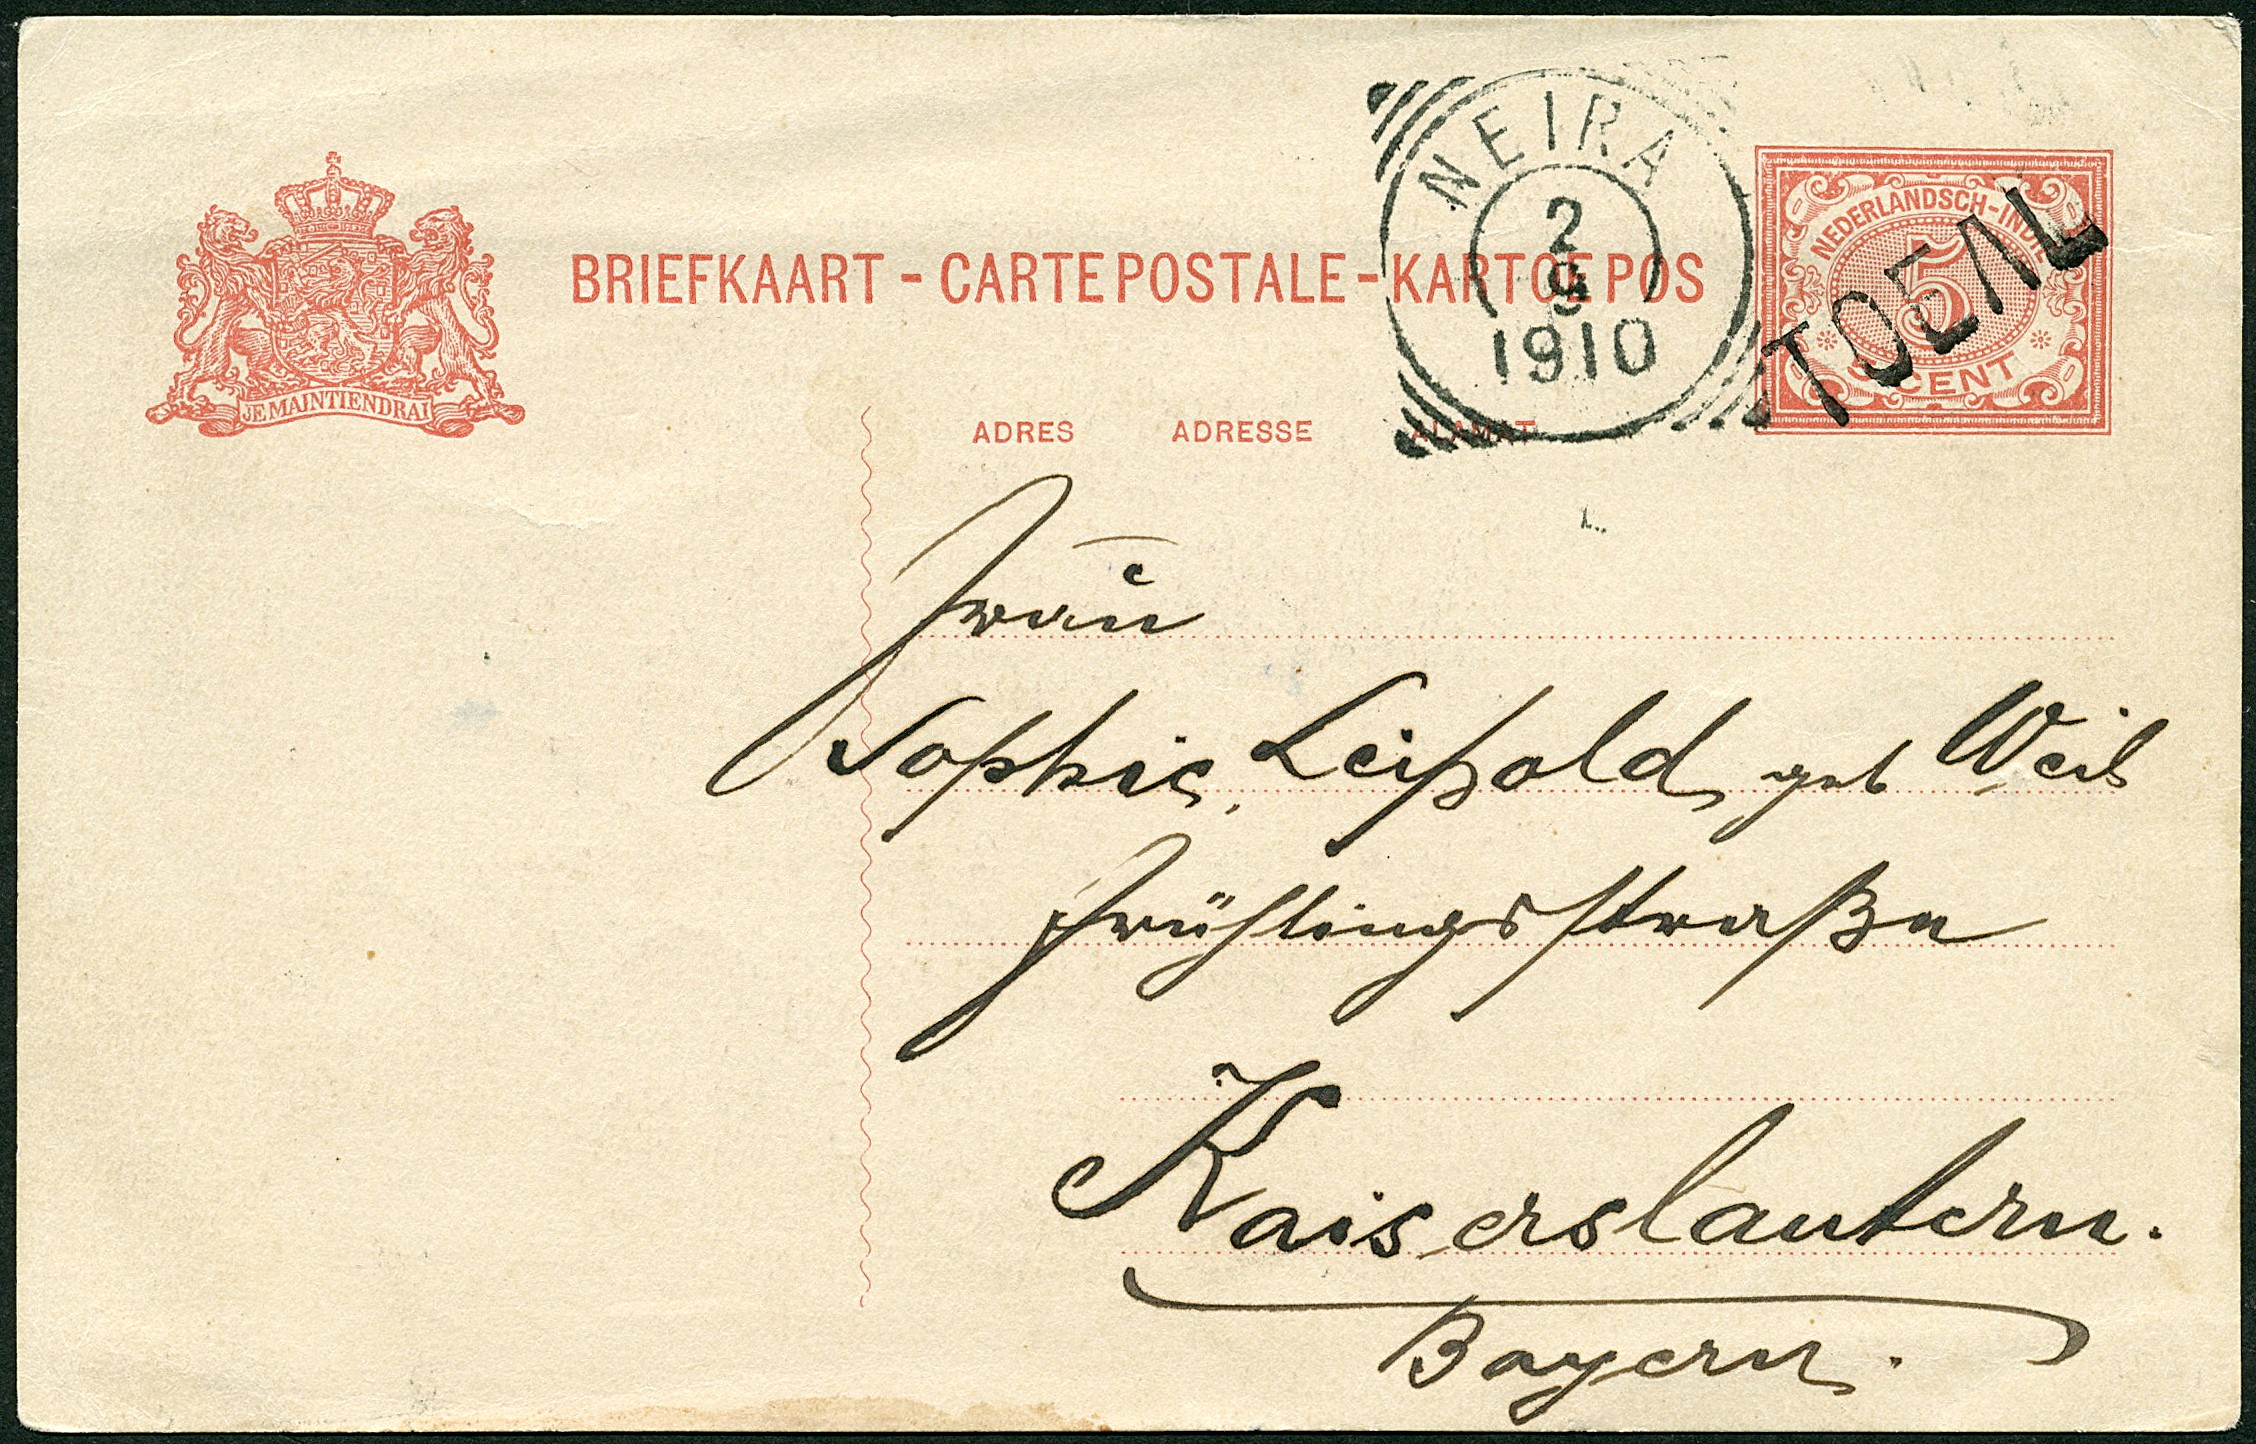 JE MAINTIENDRAI
BRIEFKAART - CARTE POSTALE - KARTOE POS
NEIRA
2
9
1910
NEDERLANDSCH-INDIË
5
5 CENT
TOEAL
ADRES ADRESSE ALAMAT
Frau
Sophie Leipold geb Weil
Frühlingsstraße
Kaiserslautern.
Bayern.